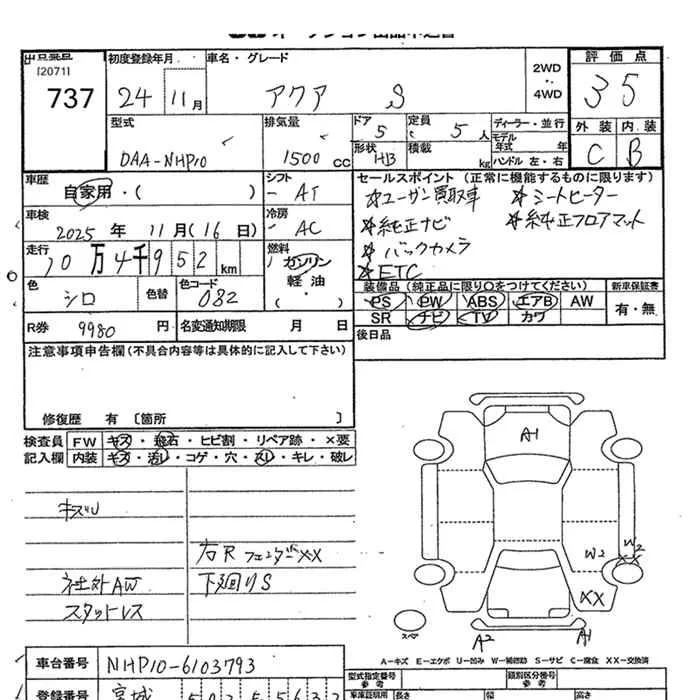 オークション出品申込書
出品番号
[2071]
737
初度登録年月
24
11月
車名・グレード
アクア S
2WD
・・
4WD
評価点
3 5
型式
DAA-NHP10
排気量
1500 CC
ドア
5
定員
5 人
形状
HB
積載
kg
ディーラー・並行
モデル
年式 年
ハンドル 左・右
外装
内装
C
B
車歴
自家用・( )
シフト
AT
車検
2025 年 11 月(16 日)
冷房
AC
走行
10 万 4 千 9 5 2 km
燃料
ガソリン
・
軽油
・
( )
色
シロ
色替
色コード
082
R券
9980 円
名変通知期限 月 日
セールスポイント (正常に機能するものに限ります)
☆ユーザー買取車 ☆シートヒーター
☆純正ナビ ☆純正フロアマット
☆バックカメラ
☆ETC
装備品 (純正品に限り○をつけてください)
新車保証書
PS PW ABS エアB AW
有・無
SR ナビ TV カワ
後日品
注意事項申告欄 (不具合内容等は具体的に記入して下さい)
修復歴 有 〔箇所 〕
検査員
記入欄
FW キズ・飛石・ヒビ割・リペア跡・×要
内装 キズ・汚レ・コゲ・穴・スレ・キレ・破レ
キズU
右R フェンダーXX
社外AW
下廻りS
スタットレス
A1
W2
W2
XX
XX
スペア
A2
A1
A-キズ E-エクボ U-凹み W-補修跡 S-サビ C-腐食 XX-交換済
車台番号
NHP10-6103793
型式指定番号
参考
類別区分番号
参考
登録番号
宮城
車庫証明用
長さ
幅
高さ